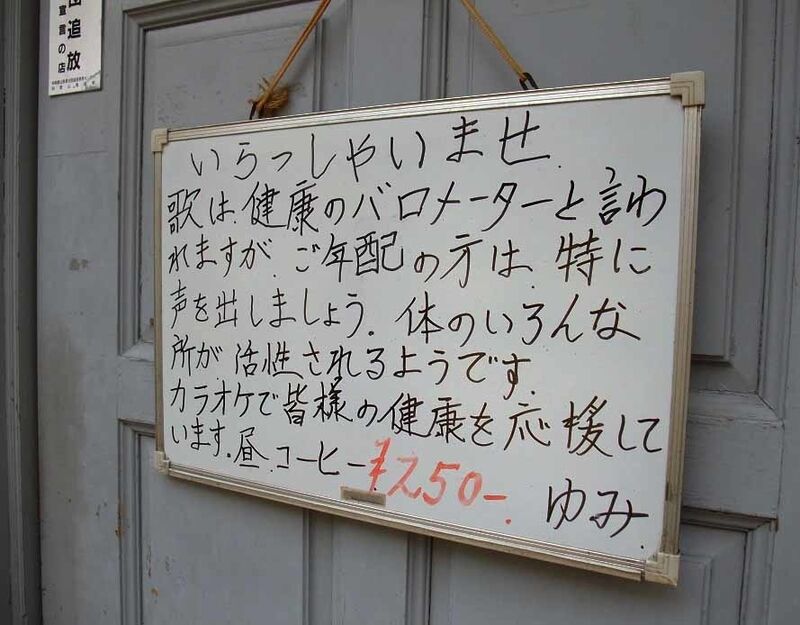 追放
宣言の店
いらっしゃいませ.
歌は、健康のバロメーターと言わ
れますが、ご年配の方は、特に
声を出しましょう. 体のいろんな
所が活性されるようです.
カラオケで皆様の健康を応援して
います. 昼. コーヒー ¥250-.
ゆみ.